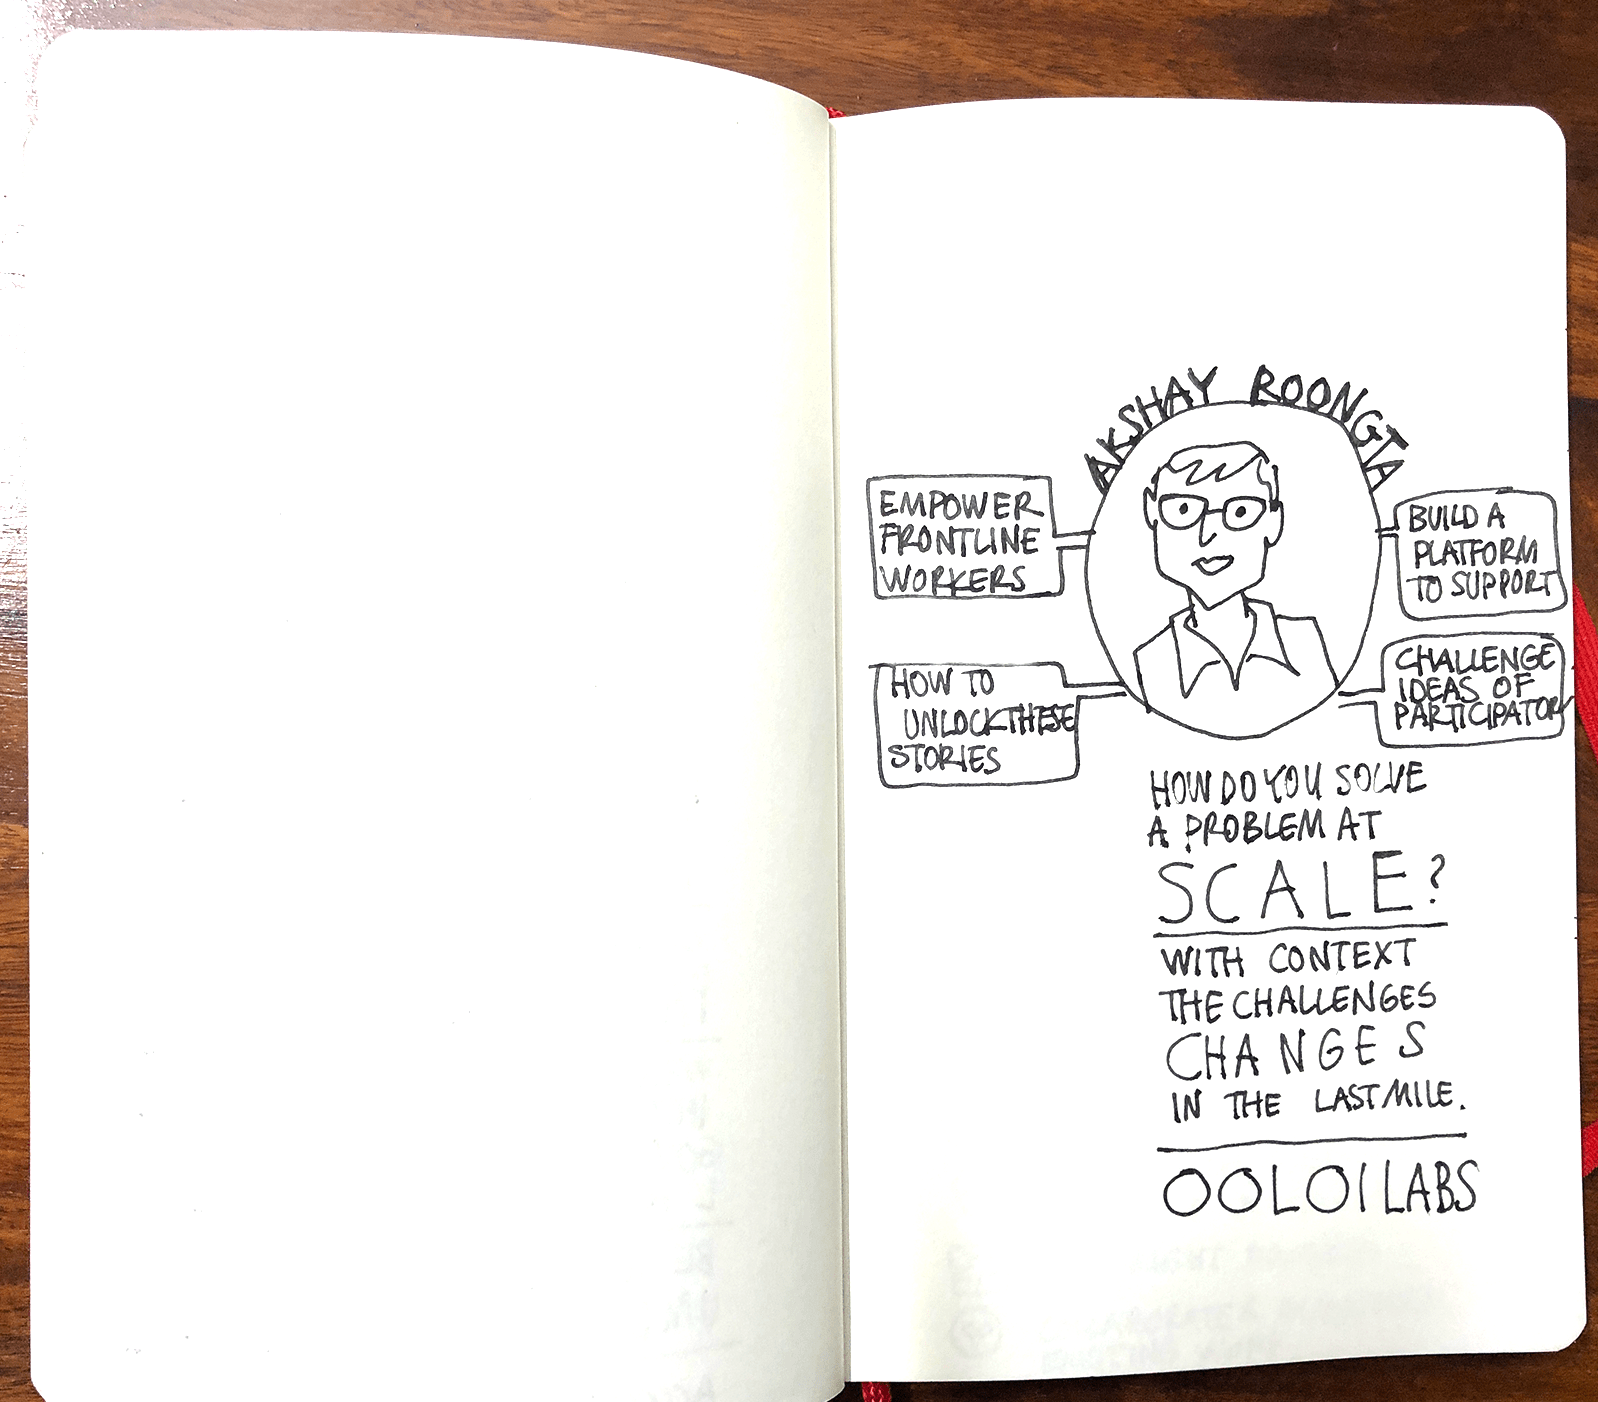 AKSHAY ROONGTA
EMPOWER
FRONTLINE
WORKERS
BUILD A
PLATFORM
TO SUPPORT
HOW TO
UNLOCK THESE
STORIES
CHALLENGE
IDEAS OF
PARTICIPATORY
HOW DO YOU SOLVE
A PROBLEM AT
SCALE?
WITH CONTEXT
THE CHALLENGES
CHANGES
IN THE LAST MILE.
OOLOI LABS